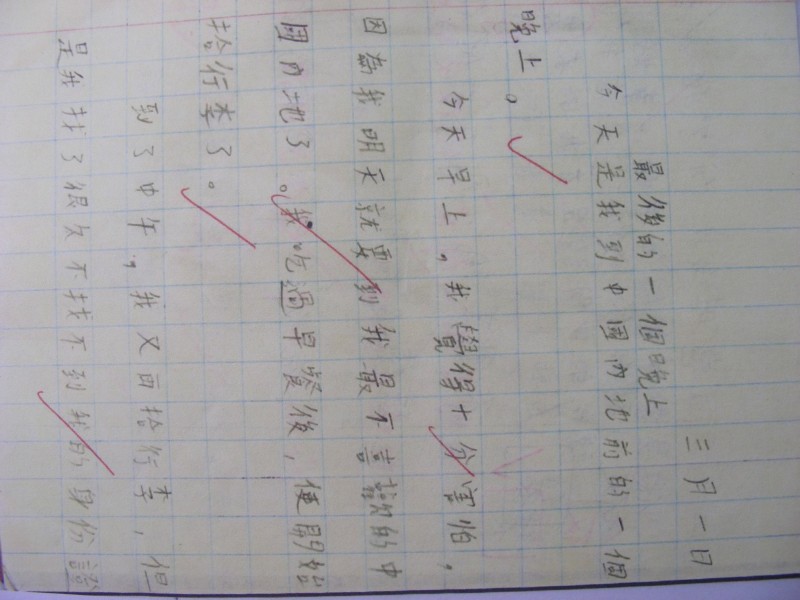 三月一日
最後的一個晚上
今天是我到中國內地前的一個
晚上。
今天早上,我覺得十分害怕,
因為我明天就要到我最不喜歡的中
國內地了。我吃過早餐後,便開始
拾行李了。
到了中午,我又拾行李,但
是我找了很久不找不到我的身份證